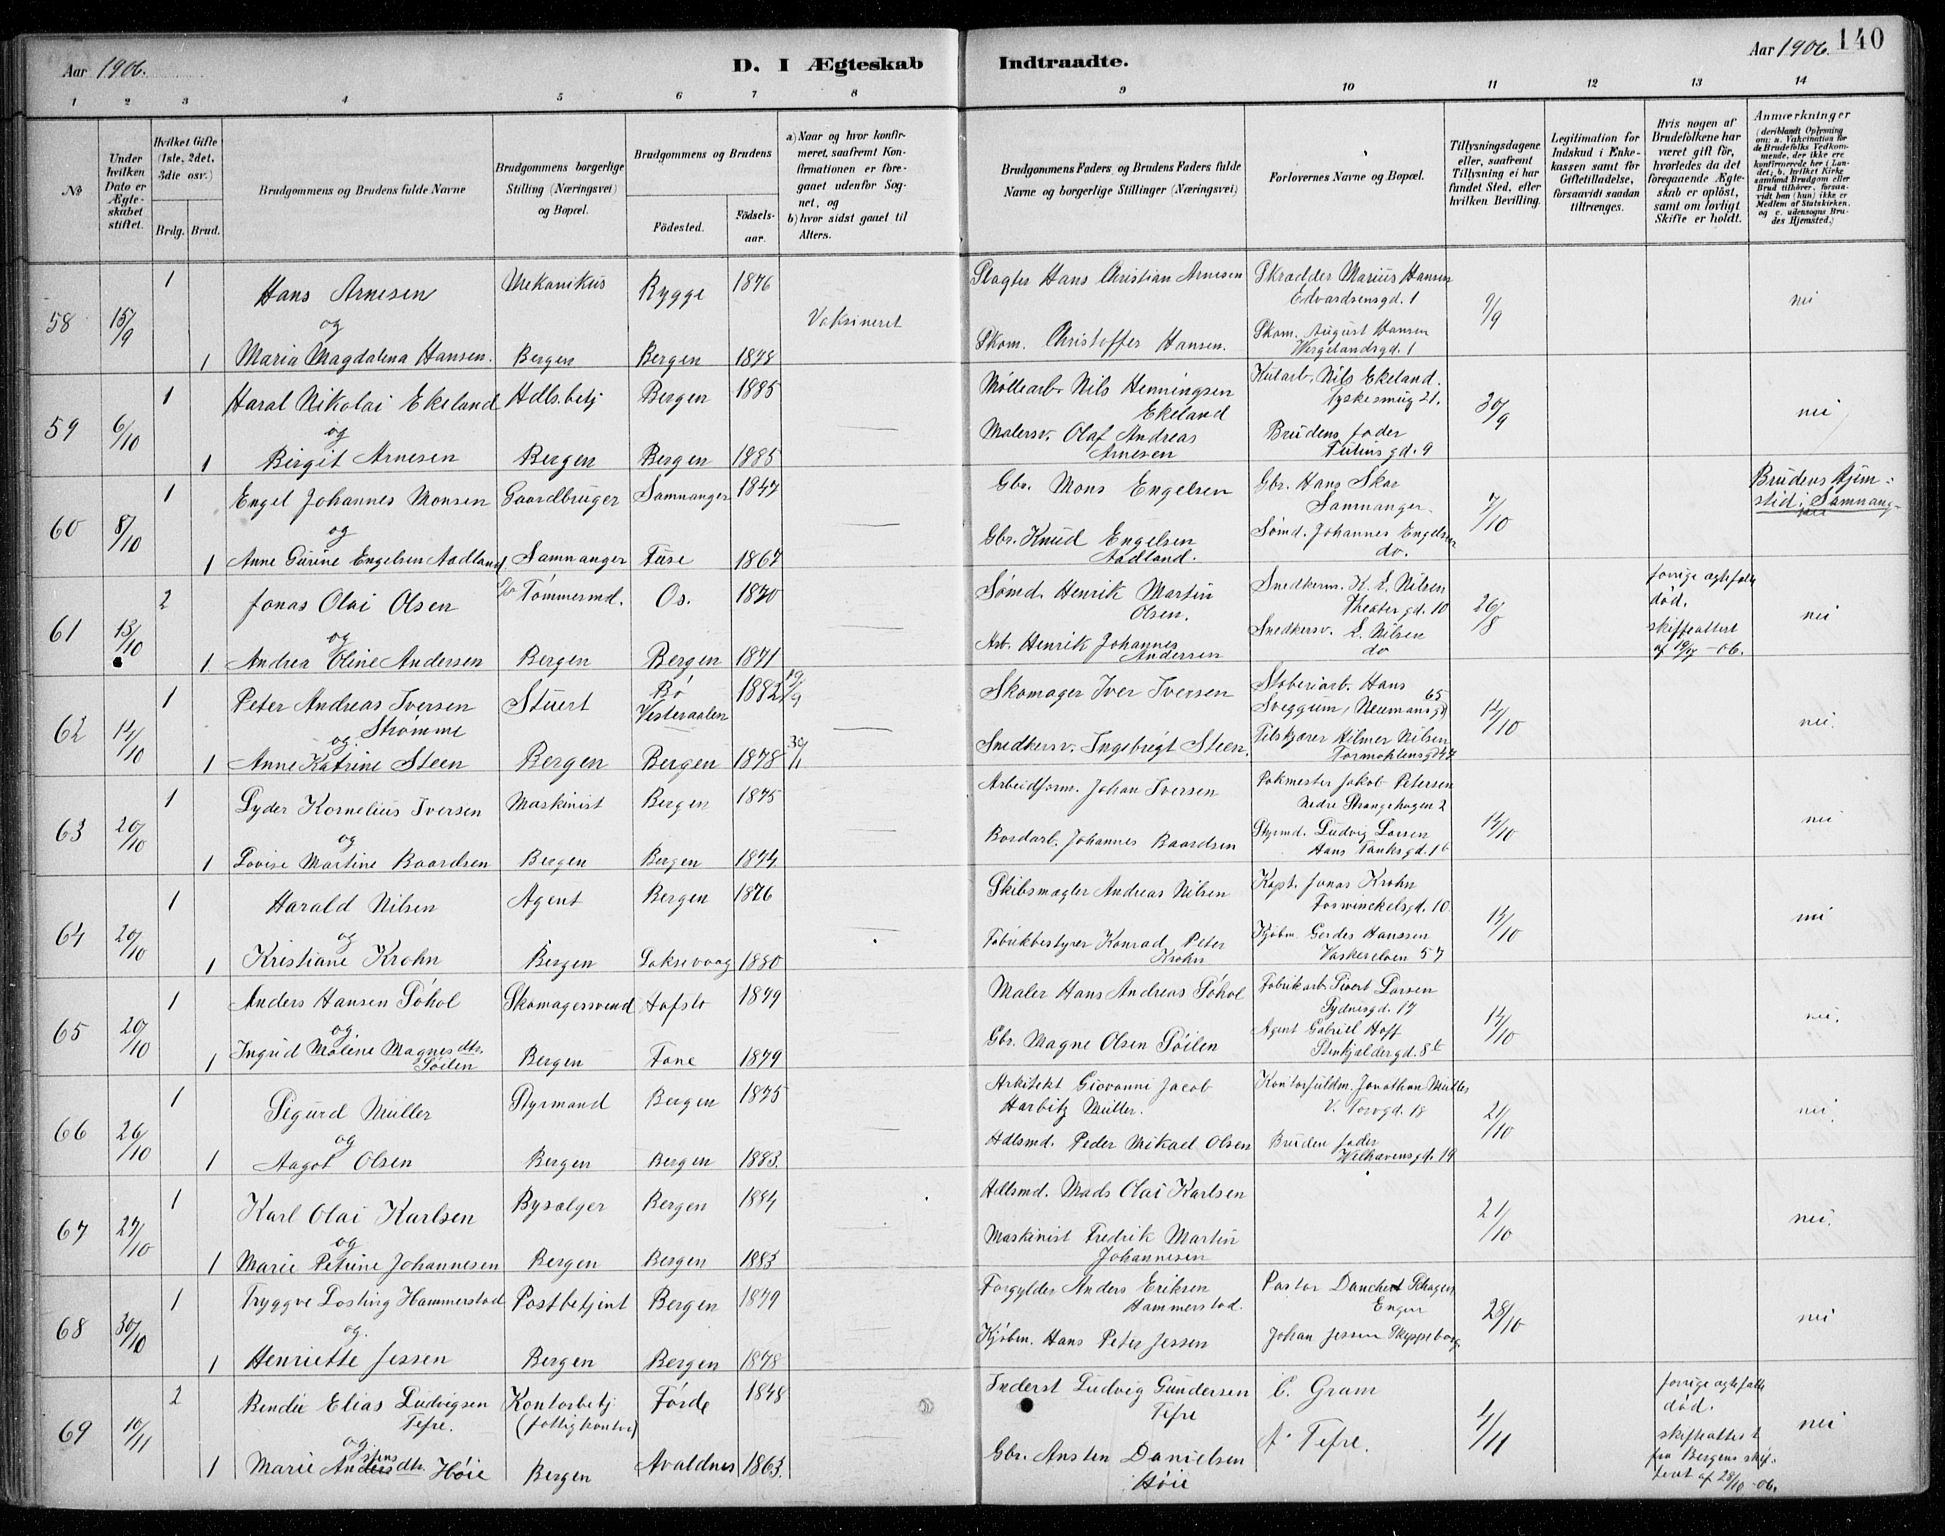 Aar 1906.
D. I Ægteskab
Indtraadte.
Aar 1906. 140
1 2 3 4 5 6 7 8 9 10 11 12 13 14
No
Under hvilken Dato er Ægteskabet stiftet.
Hvilket Gifte (1ste, 2det, 3die osv.)
Brdg. Brud.
Brudgommens og Brudens fulde Navne
Brudgommens borgerlige Stilling (Næringsvei) og Bopæl.
Brudgommens og Brudens
Födested. Födselsaar.
a) Naar og hvor konfirmeret, saafremt Konfirmationen er foregaaet udenfor Sognet, og
b) hvor sidst gaaet til Alters.
Brudgommens Faders og Brudens Faders fulde Navne og borgerlige Stillinger (Næringsvei)
Forlovernes Navne og Bopæl.
Tillysningsdagene eller, saafremt Tillysning ei har fundet Sted, efter hvilken Bevilling.
Legitimation for Indskud i Enkekassen samt for Giftetilladelse, forsaavidt saadan tiltrænges.
Hvis nogen af Brudefolkene har været gift för, hvorledes da det foregaaende Ægteskab er oplöst, samt om lovligt Skifte er holdt.
Anmærkninger (deriblandt Oplysning om: a. Vakcination for de Brudefolks Vedkommende, der ikke ere konfirmerede her i Landet; b. hvilket Kirkesamfund Brudgom eller Brud tilhörer, forsaavidt han (hun) ikke er Medlem af Statskirken, og c. udensogns Brudes Hjemsted.)
58 15/9 1 Hans Arnesen Mekanikus Rygge 1876 Slagter Hans Christian Arnesen Skrædder Marius Hansen Edvardsensgd. 1 9/9 nei
og Vaksineret
1 Maria Magdalena Hansen. Bergen Bergen 1878 Skom. Christoffer Hansen. Skom. August Hansen Wergelandsgd. 1
59 6/10 1 Haral Nikolai Ekeland Hdls.betj Bergen 1885 Møllearb. Nils Henningsen Ekeland Kularb. Nils Ekeland. Tyskesmug 21. 30/9 nei
og
1 Birgit Arnesen Bergen Bergen 1885 Malersv. Olaf Andreas Arnesen Brudens fader
60 8/10 1 Engel Johannes Monsen Gaardbruger Samnanger 1847 Gbr. Mons Engelsen Gbr. Hans Skar Samnanger. 7/10 Brudens Hjemstid: Samnanger
og
1 Anne Gurine Engelsen Aadland. Samnanger Fuse 1867 Gbr. Knud Engelsen Aadland. Sømd. Johannes Engelsen do.
61 13/10 2 Jonas Olai Olsen Tømmermd. Os. 1870 Sømd. Henrik Martin Olsen. Snedkerm. K. L. Nilsen Theatergd. 10 26/8 forrige ægtefælle død. skifteattest nei
og
1. Andrea Oline Andersen Bergen Bergen 1871 Arb. Henrik Johannes Andersen Snedkersv. L. Nilsen do
62 14/10 1 Peter Andreas Iversen Strømme Stuert Bø Vesteraalen 1882 19/9 Skomager Iver Iversen Støberiarb. Hans Sveggum, Neumansgd 65 14/10 nei.
og
1 Anne Katrine Steen Bergen Bergen 1878 30/11 Snedkersv. Ingebrigt Steen. Hilmer Nilsen
63 20/10 1 Lyder Kornelius Iversen Maskinist Bergen 1875 Arbeidform. Johan Iversen Pakmester Jakob Petersen Nedre Strangehagen 2 14/10 nei
og
1 Lovise Martine Baardsen Bergen Bergen 1874 Bordarb. Johannes Baardsen Styrmd. Ludvig Larsen Hans Tanksgd. 1b
64 20/10 1 Harald Nilsen Agent Bergen 1876 Skibsmægler Andreas Nilsen Kapt. Jonas Krohn Forswinckelsgd. 10 14/10 nei
og
1 Kristiane Krohn Bergen Laksevaag 1880 Fabrikbestyrer Konrad Peter Krohn Kjøbm. Gerdes Hanssen Vaskerelven 57
65 20/10 1 Anders Hansen Søhol Skomagersvend Hafslo 1879 Maler Hans Andreas Søhol Fabrikarb. Sivert Larsen Sydnesgd. 17 14/10 nei.
og.
1 Ingrid Moline Magnesdtr. Søilen Bergen Fane 1879 Gbr. Magne Olsen Søilen Agent Gabriel Hoff
66 26/10 1 Sigurd Müller Styrmand Bergen 1875 Arkitekt Giovanni Jacob Harbitz Müller. Kontorfuldm. Jonathan Müller V. Torvgd. 18 21/10 nei.
og
1 Aagot Olsen Bergen Bergen 1883. Hdlsmd. Peder Mikael Olsen Bruden fader Welhavensgd. 19
67 27/10 1 Karl Olai Karlsen Bysælger Bergen 1884 Hdlsmd. Mads Olai Karlsen 21/10 nei.
og
1 Marie Petrine Johannesen Bergen Bergen 1883 Maskinist Fredrik Martin Johannesen
68 30/10 1 Tryggve Losting Hammerstad Postbetjent Bergen 1879 Forgylder Anders Eriksen Hammerstad. Pastor Danchert 28/10 nei
og.
1 Henriette Jessen Bergen Bergen 1878 Kjøbm. Hans Peter Jessen Johan Jessen
69 10/11 2 Bendix Elias Ludvigsen Tefre. Kontorbetj. (fattigkontor) Førde 1848 Inderst Ludvig Gundersen Tefre C. Gram 4/11 forrige ægtefælle død. skifteattest fra Bergens skifteret af 28/10-06. nei
og
1 Marie Andersdtr. Høie Bergen Avaldnes 1863. Gbr. Ansten Danielsen Høie J. Tefre.